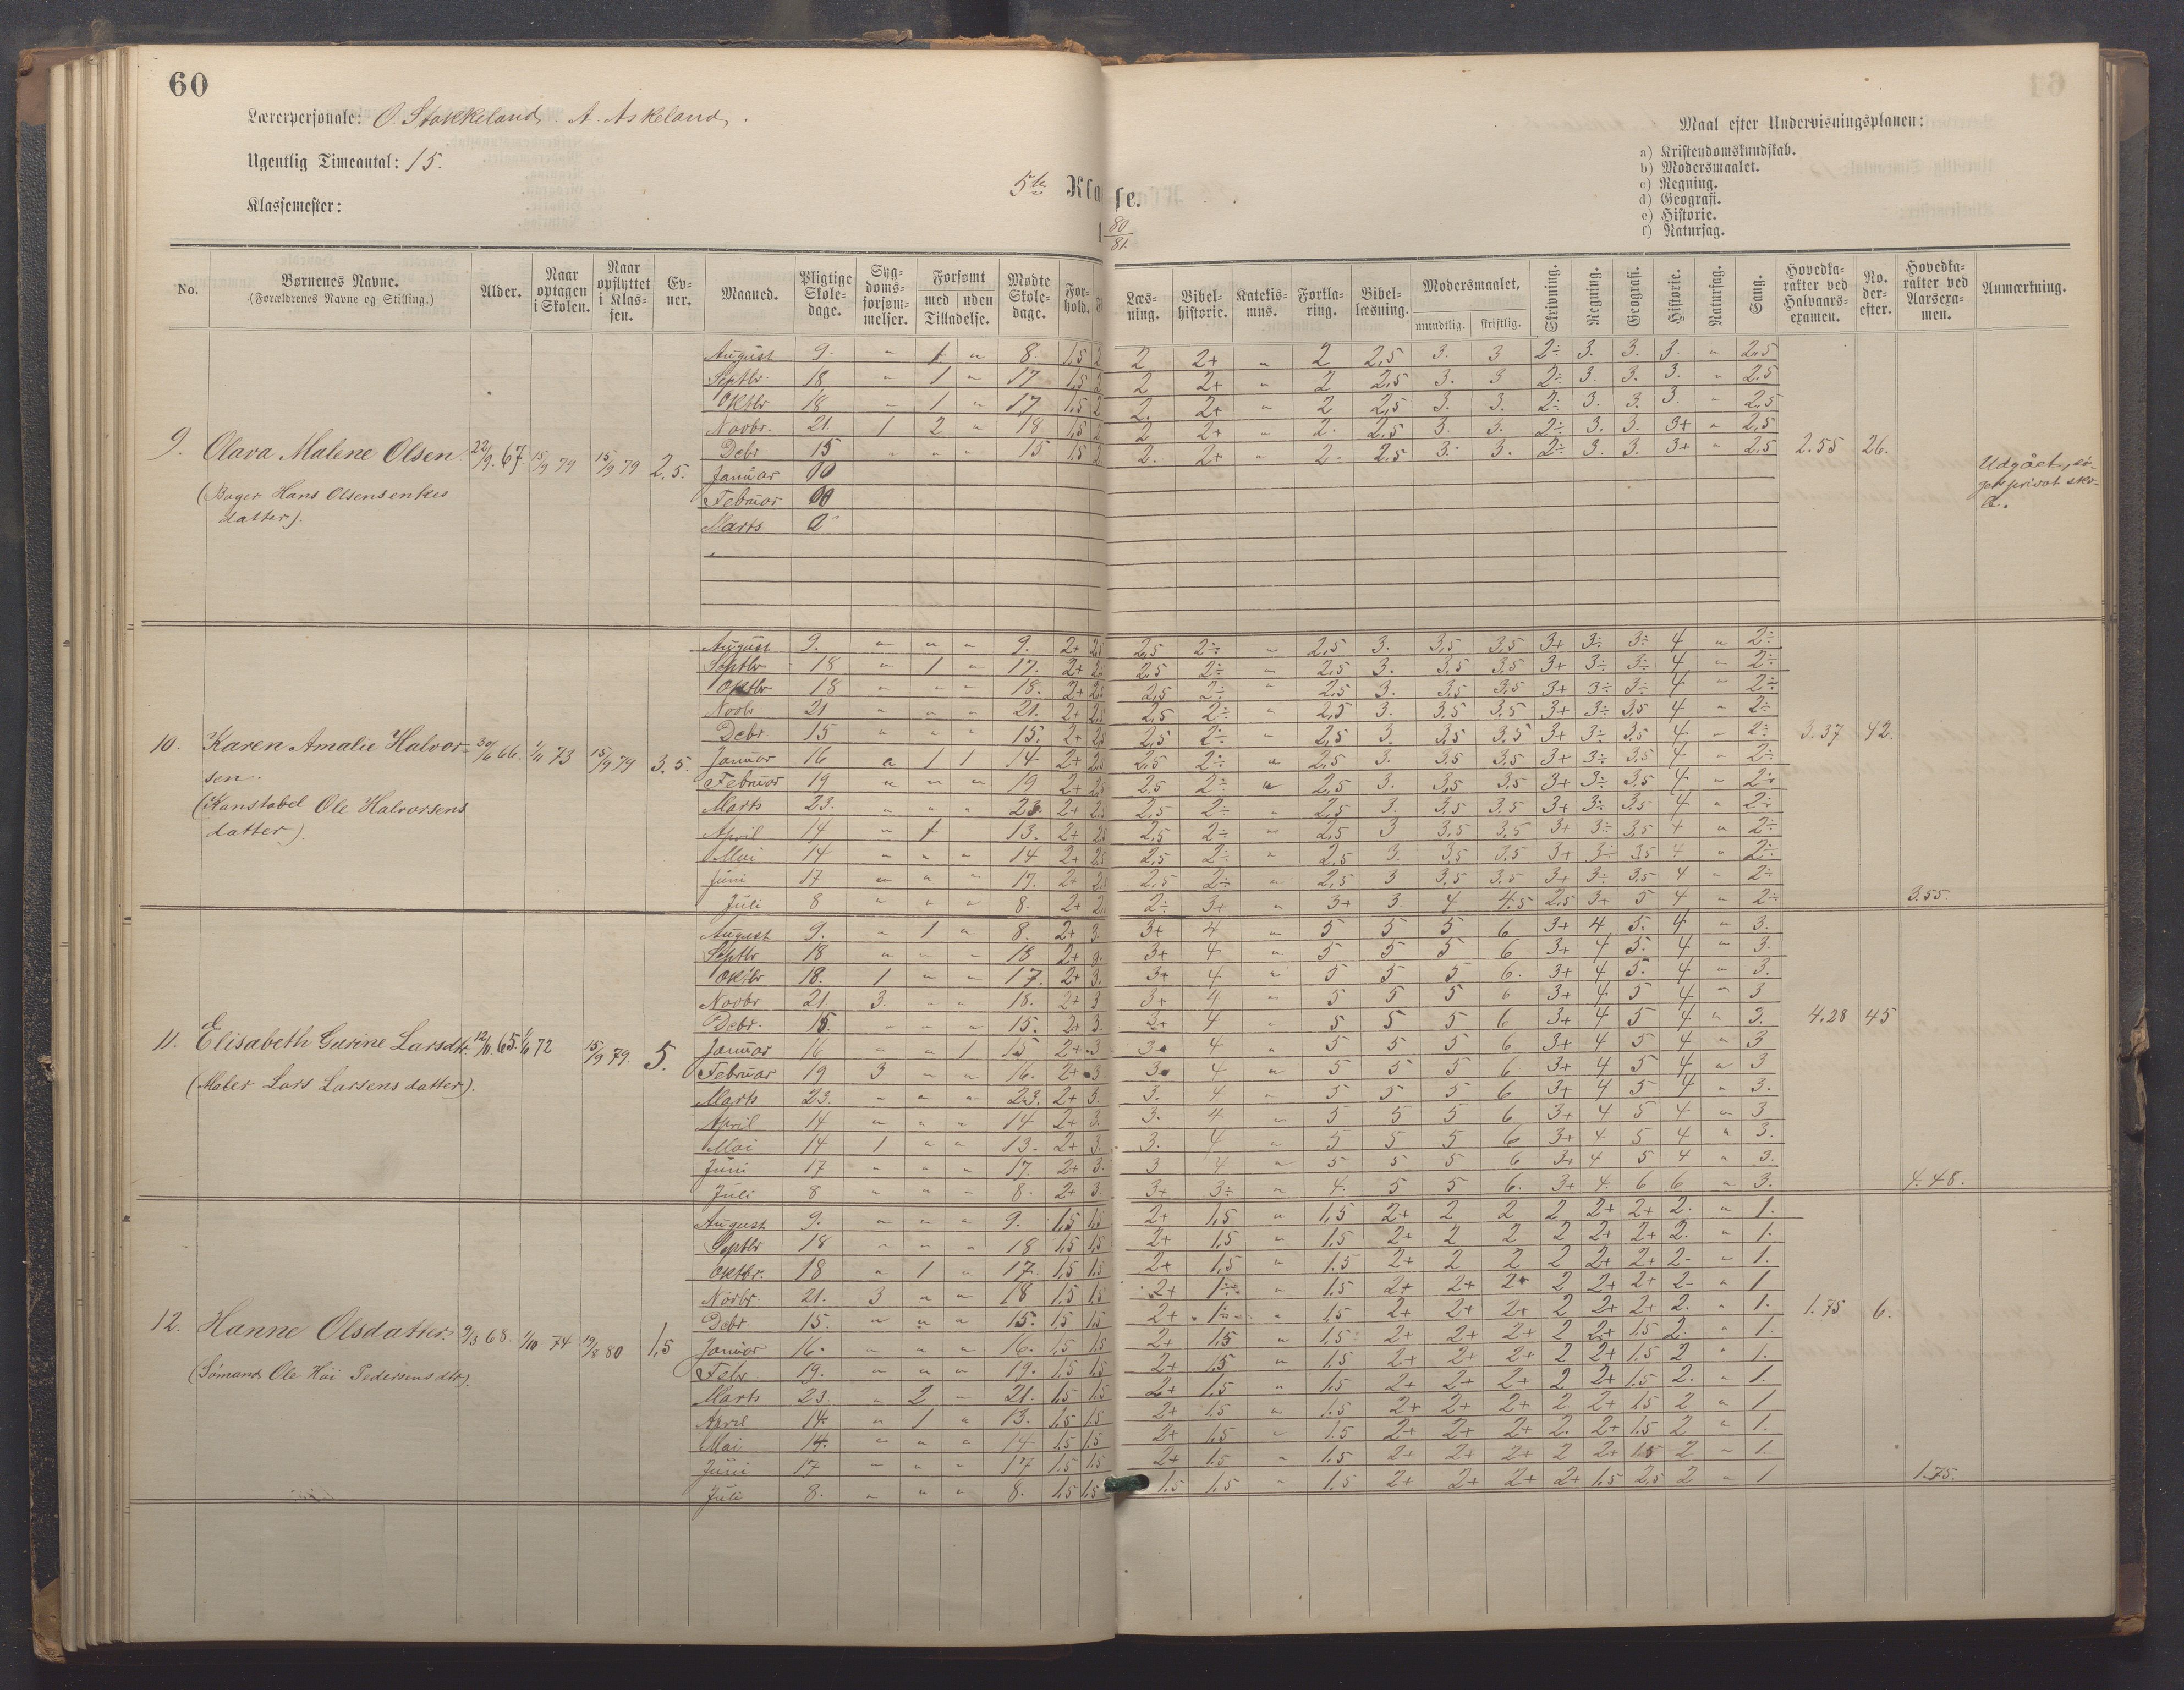 60
Lærerpersonale: O. Stokkeland. A. Askeland.
Ugentlig Timeantal: 15.
Klassemester:
5te Klasse.
1 80/81.
Maal efter Undervisningsplanen:
a) Kristendomskundskab.
b) Modersmaalet.
c) Regning.
d) Geografi.
e) Historie.
f) Naturfag.
No. | Børnenes Navne. (Forældrenes Navne og Stilling.) | Alder. | Naar optagen i Skolen. | Naar opflyttet i Klassen. | Evner. | Maaned. | Pligtige Skoledage. | Sygdomsforsømmelser. | Forsømt med uden Tilladelse. | Mødte Skoledage. | Forhold. | F | Læsning. | Bibelhistorie. | Katekismus. | Forklaring. | Bibellæsning. | Modersmaalet, mundtlig. skriftlig. | Skrivning. | Regning. | Geografi. | Historie. | Naturfag. | Sang. | Hovedkarakter ved Halvaarsexamen. | No. derefter. | Hovedkarakter ved Aarsexamen. | Anmærkning.
9. Olava Malene Olsen 22/9. 67. 15/9 79 15/9 79 2,5. 2.55 26.
(Bager Hans Olsens enkes
datter).
Udgået,
privat
August 9. " 1 " 8 1,5 2 2 2+ " 2 2,5 3. 3 2÷ 3. 3. 3. " 2,5
Septbr. 18 " 1 " 17 1,5 2 2 2+ " 2 2,5 3. 3 2÷ 3. 3. 3. " 2,5
Oktbr 18 " 1 " 17 1,5 2 2. 2+ " 2 2,5 3. 3. 2÷ 3. 3. 3. " 2,5
Novbr. 21. 1 2 " 18 1,5 2 2 2+ " 2. 2,5 3. 3. 2÷ 3. 3. 3+ " 2,5
Debr 15 " " " 15 1,5 2 2. 2+ " 2. 2,5 3. 3. 2÷ 3. 3. 3+ " 2,5
Januar
Februar
Marts
10. Karen Amalie Halvor- 30/6 66. 1/11 73 15/9 79 3,5. 3.37 42. 3.55.
sen.
(Konstabel Ole Halvorsens
datter).
August 9. " " " 9. 2+ 2,5 2,5 2÷ " 2,5 3. 3,5 3,5 3+ 3÷ 3÷ 4 " 2÷
Septbr 18 " 1 " 17. 2+ 2,5 2,5 2÷ " 2,5 3. 3,5 3,5 3+ 3÷ 3÷ 4 " 2÷
Oktbr 18 " " " 18. 2+ 2,5 2,5 2÷ " 2,5 3. 3,5 3,5 3+ 3÷ 3÷ 4 " 2÷
Novbr 21 " " " 21. 2+ 2,5 2,5 2÷ " 2,5 3. 3,5 3,5 3+ 3÷ 3,5 4 " 2÷
Debr 15 " " " 15. 2+ 2,5 2,5 2÷ " 2,5 3. 3,5 3,5 3+ 3÷ 3,5 4 " 2÷
Januar 16 " 1 1 14 2+ 2,5 2,5 2÷ " 2,5 3. 3,5 3,5 3+ 3÷ 3,5 4 " 2÷
Februar 19 " " " 19 2+ 2,5 2.5 2÷ " 2,5 3. 3,5 3,5 3+ 3÷ 3,5 4 " 2÷
Marts 23. " " " 23. 2+ 2,5 2,5 2÷ " 2,5 3 3,5 3,5 3+ 3÷ 3,5 4 " 2÷
April 14 " 1 13. 2+ 2,5 2,5 2÷ " 2,5 3 3,5 3,5 3+ 3÷ 3,5 4 " 2÷
Mai 14 " " " 14 2+ 2,5 2,5 2÷ " 2,5 3. 3,5 3.5 3+ 3÷ 3,5 4 " 2÷
Juni 17 " " " 17. 2+ 2,5 2,5 2÷ " 2,5 3 3,5 3.5 3+ 3÷ 3,5 4 " 2÷
Juli 8 " " " 8. 2+ 2,5 2÷ 3+ " 3+ 3. 4 4.5 2,5 3+ 5 4 " 2÷
11. Elisabeth Gurine Larsdtr. 12/11. 65. 1/6 72 15/9 79. 5. 4.28 45 4.48.
(Maler Lars Larsens datter).
August 9. " 1 " 8. 2+ 3. 3+ 4 " 5 5 5 6 3+ 4 5. 4 " 3.
Septbr 18 " " " 18 2+ 3. 3+ 4 " 5 5 5 6 3+ 4 5. 4 " 3.
Oktbr 18. 1 " " 17. 2+ 3. 3+ 4 " 5 5 5 6. 3+ 4 5. 4 " 3.
Novbr 21. 3. " " 18. 2+ 3 3+ 4 " 5 5 5 6 3+ 4 5 4 " 3
Debr. 15. " " " 15. 2+ 3. 3+ 4 " 5 5 5 6 3+ 4 5 4 " 3.
Januar 16 " " 1 15 2+ 3 3. 4 " 5 5 5 6 3+ 4 5 4 " 3
Februar 19 3 " " 16. 2+ 3. 3. 4 " 5 5 5 6 3+ 4 5 4 " 3
Marts 23. " " " 23. 2+ 3. 3. 4 " 5 5 5 6 3+ 4 5 4 " 3.
April 14 " " " 14 2+ 3. 3. 4 " 5 5 5 6 3+ 4 5 4 " 3
Mai 14 1 " " 13. 2+ 3. 3. 4 " 5 5 5 6 3+ 4 5 4 " 3.
Juni 17 " " " 17. 2+ 3. 3 4 " 5 5 5 6 3+ 4 5 4 " 3.
Juli 8 " " " 8. 2+ 3. 3+ 3÷ " 4. 5 5 6. 3+ 4. 6 6 " 3.
12. Hanne Olsdatter. 9/3 68. 1/10 74 19/8 80 1,5 1.75 6. 1.75.
(Sømand Ole Hoi Pedersens dtr).
August 9. " " " 9. 1,5 1,5 2+ 1,5 " 1,5 2+ 2 2 2 2+ 2+ 2. " 1.
Septbr 18 " " " 18 1,5 1,5 2+ 1,5 " 1.5 2+ 2 2 2 2+ 2+ 2. " 1.
Oktbr. 18 " 1 " 17. 1,5 1.5 2+ 1,5 " 1.5 2+ 2 2 2 2+ 2+ 2 " 1.
Novbr. 21. 3 " " 18 1.5 1.5 2+ 1÷ " 1.5 2+ 2+ 2+ 2 2+ 2+ 2 " 1
Debr. 15. " " " 15. 1.5 1.5 2+ 1÷ " 1,5 2+ 2+ 2+ 2 2+ 2+ 2. " 1.
Januar 16. " " " 16. 1,5 1.5 2+ 1.5 " 1.5 2+ 2+ 2+ 2 2+ 1.5 2. " 1.
Febr. 19. " " " 19. 1.5 1.5 2+ 1.5 " 1.5 2+ 2+ 2+ 2 2+ 1.5 2 " 1.
Marts 23. " 2 " 21. 1.5 1.5 2+ 1,5 " 1.5 2+ 2+ 2+ 2 2+ 1.5 2. " 1.
April 14. " 1 " 13. 1.5 1.5 2+ 1.5 " 1.5 2+ 2+ 2+ 2. 2+ 1.5 2 " 1
Mai 14. " " " 14 1.5 1.5 2+ 1,5 " 1.5 2+ 2+ 2+ 2. 2+ 1.5 2 " 1.
Juni 17 " " " 17 1.5 1.5 2+ 1.5 " 1.5 2+ 2+ 2+ 2 2+ 1.5 2 " 1.
Juli 8. " " " 8. 1,5 1.5 1.5 1,5 " 1,5 2+ 2+ 2+ 2+ 1.5 2,5 2 " 1